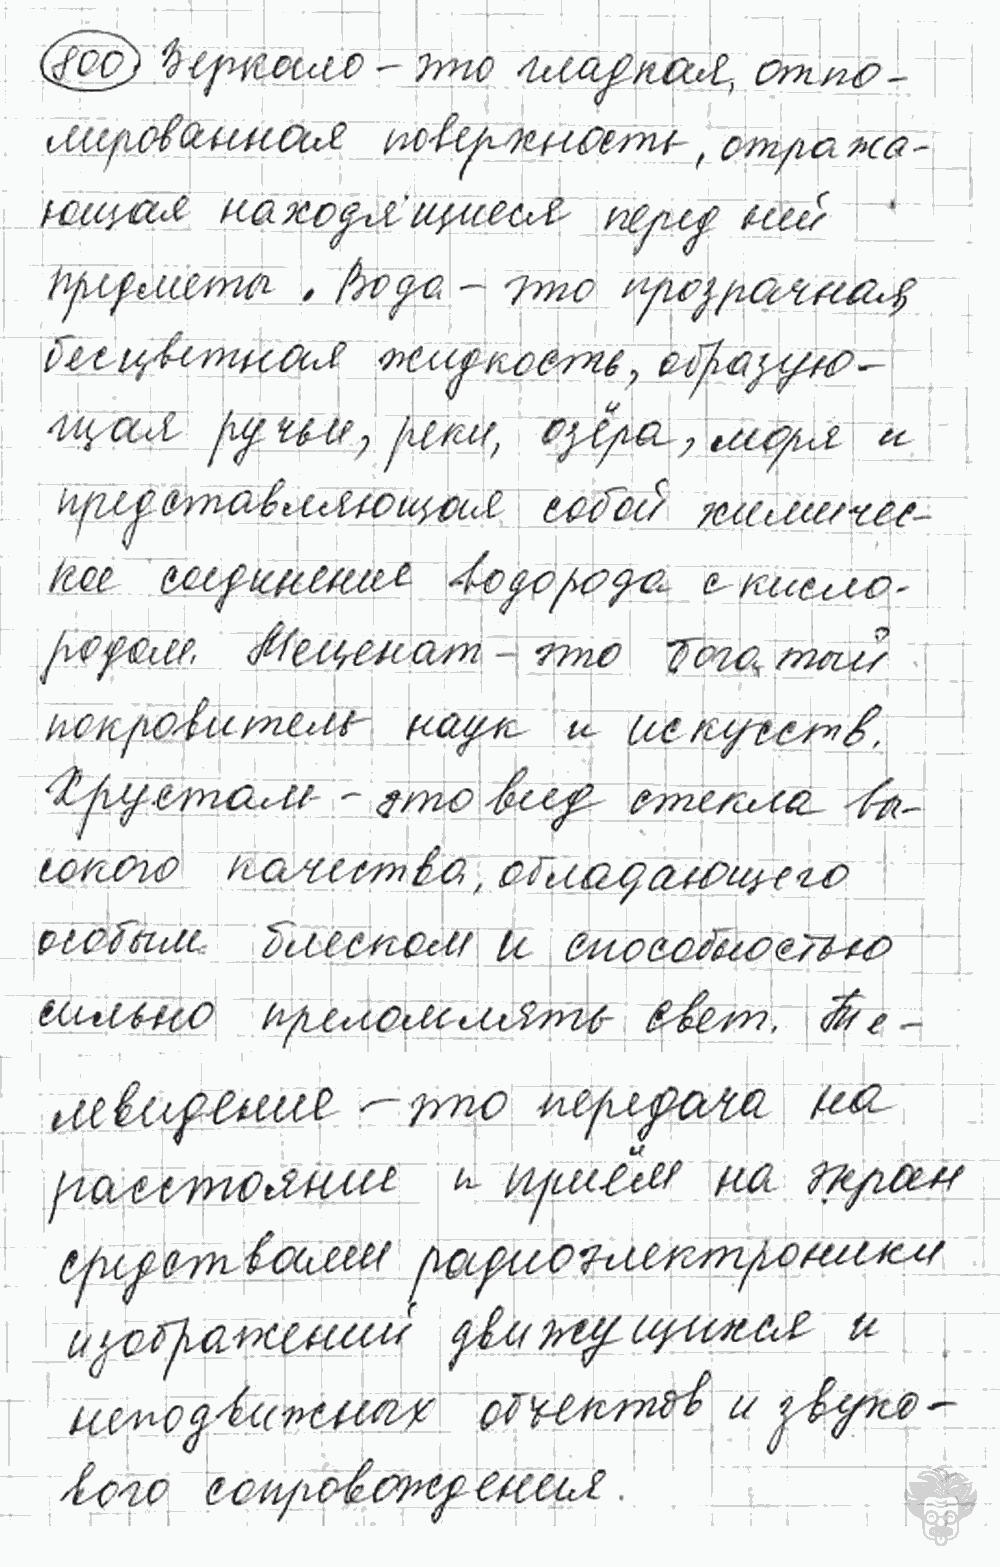 800. Зеркало – это гладкая, отпо-
лированная поверхность, отража-
ющая находящиеся перед ней
предметы. Вода – это прозрачная,
бесцветная жидкость, образую-
щая ручьи, реки, озёра, моря и
представляющая собой химичес-
кое соединение водорода с кисло-
родом. Меценат – это богатый
покровитель наук и искусств.
Хрусталь – это вид стекла вы-
сокого качества, обладающего
особым блеском и способностью
сильно преломлять свет. Те-
левидение – это передача на
расстояние и приём на экран
средствами радиоэлектроники
изображений движущихся и
неподвижных объектов и звуко-
вого сопровождения.